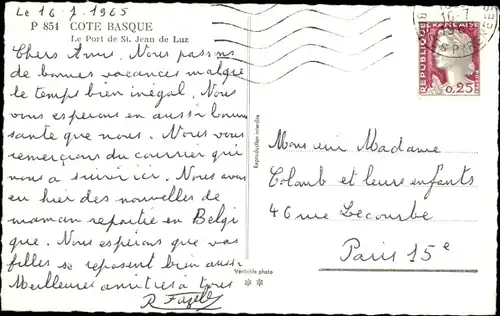 Le 16.7.1965
P 851 COTE BASQUE
Le Port de St. Jean de Luz
Chers Amis. Nous passons
de bonnes vacances malgré
le temps bien inégal. Nous
vous espérons en aussi bonne
santé que nous. Nous vous
remercions du courrier qui
nous a suivi ici. Nous avons
eu hier des nouvelles de
maman repartie en Belgi
que. Nous espérons que vos
filles se reposent bien aussi
Meilleures amitiés à tous
Reproduction interdite
Véritable photo
REPUBLIQUE FRANCAISE
0,25
Monsieur Madame
Colomb et leurs enfants
46 rue Lecourbe
Paris 15e